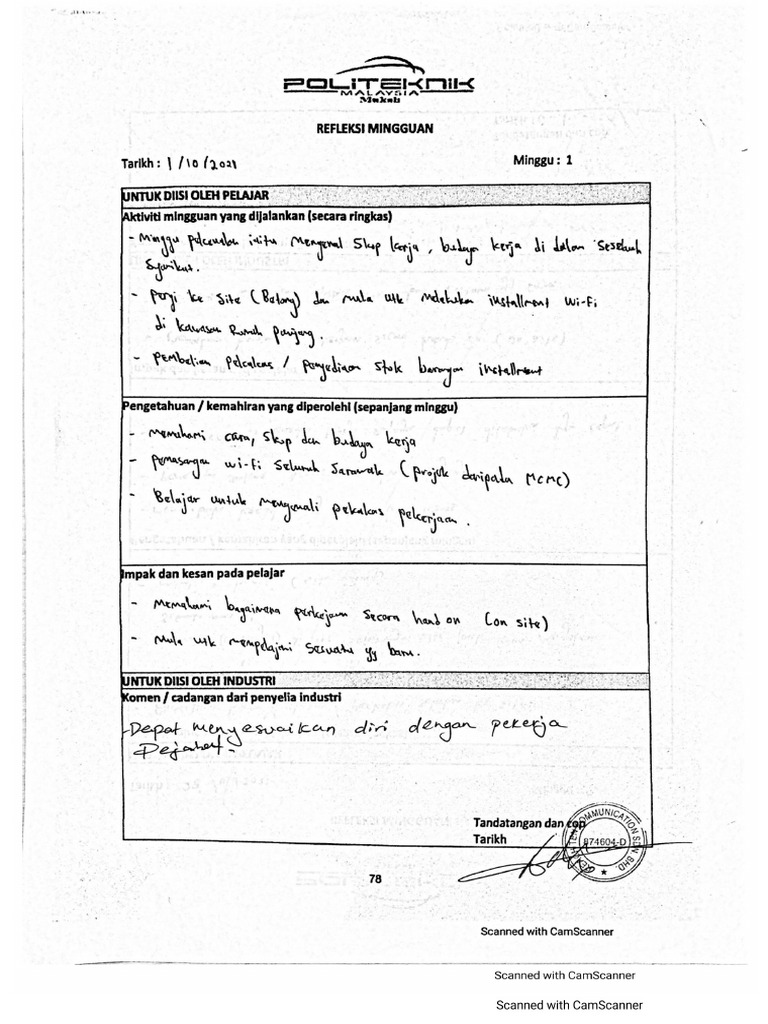 POLITEKNIK
MALAYSIA
Mukah
REFLEKSI MINGGUAN
Tarikh : 1/10/2021 Minggu : 1
UNTUK DIISI OLEH PELAJAR
Aktiviti mingguan yang dijalankan (secara ringkas)
- Minggu mengenal skop kerja, budaya kerja di dalam sesebuah
Syarikat.
- pergi ke site (Betong) dan mula utk melakukan installment Wi-Fi
di kawasan Rumah panjang.
- pembelian pekakas / penyediaan stok barangan installment
Pengetahuan / kemahiran yang diperolehi (sepanjang minggu)
- memahami cara, skop dan budaya kerja
- pemasangan wi-fi seluruh Sarawak (projek daripada MCMC)
- Belajar untuk mengenali pekakas pekerjaan.
Impak dan kesan pada pelajar
- memahami bagaimana perkejaan secara hand on (on site)
- mula utk mempelajari sesuatu yg baru.
UNTUK DIISI OLEH INDUSTRI
Komen / cadangan dari penyelia industri
- Dapat menyesuaikan diri dengan pekerja
Pejabat.
Tandatangan dan cop
Tarikh
COMMUNICATION SDN BHD
874604-D
78
Scanned with CamScanner
Scanned with CamScanner
Scanned with CamScanner